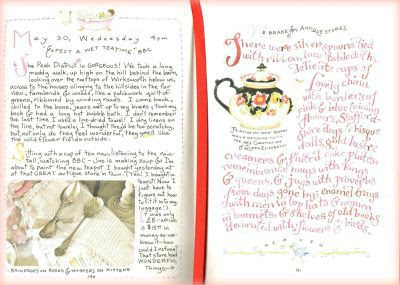 May 30, Wednesday 4pm
"EXPECT A WET TEATIME" BBC
The Peak District is GORGEOUS! We took a long
muddy walk, up high on the hill behind the barn,
looking over the rooftops of Wirksworth below us,
across to the houses clinging to the hillsides in the far
view, farmlands & wolds, like a patchwork quilt of
greens, ribboned by winding roads. I came back,
chilled to the bone, jeans wet up to my knees, took my
book & had a long hot bubble bath. I don't remember
the last time I used a line-dried towel! I dry linens on
the line, but not towels; I thought they'd be too scratchy,
but not only do they feel wonderful, they smell like
the wildflower fields outside.
thing with a cup of tea now, listening to the rain
fall, watching BBC – Joe is making soup & I'm
about to paint the new teapot I bought yesterday at
that GREAT antique store in town. (Yes! I bought a
teapot! Now I
just have to
figure out how
to fit it into my
luggage!)
It was only
£8 – which
is
money – as we
know it – how
could I resist?
That store had
WONDERFUL
Things →
RAINDROPS ON ROSES & WHISKERS ON KITTENS
190
& BRAKE for ANTIQUE STORES
There were silver spoons tied
with ribbon on a table of
delicate cups of
Lovely China
with borders of
pink & blue
flowers, Stafford-
shire dogs, bisque
gold lustre
creamers & fluted cake plates,
remembrance mugs with kings
& queens, & jugs with proverbs
from days gone by, enamel trays
with men in top hats & women
in bonnets, & shelves of old books
decorated with flowers & birds.
HEAVEN
191